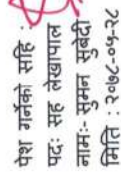 पेश गर्नेको सहि :
पदः सह लेखापाल
नामः- सुमन सुवेदी
मिति : २०७८-०५-२८